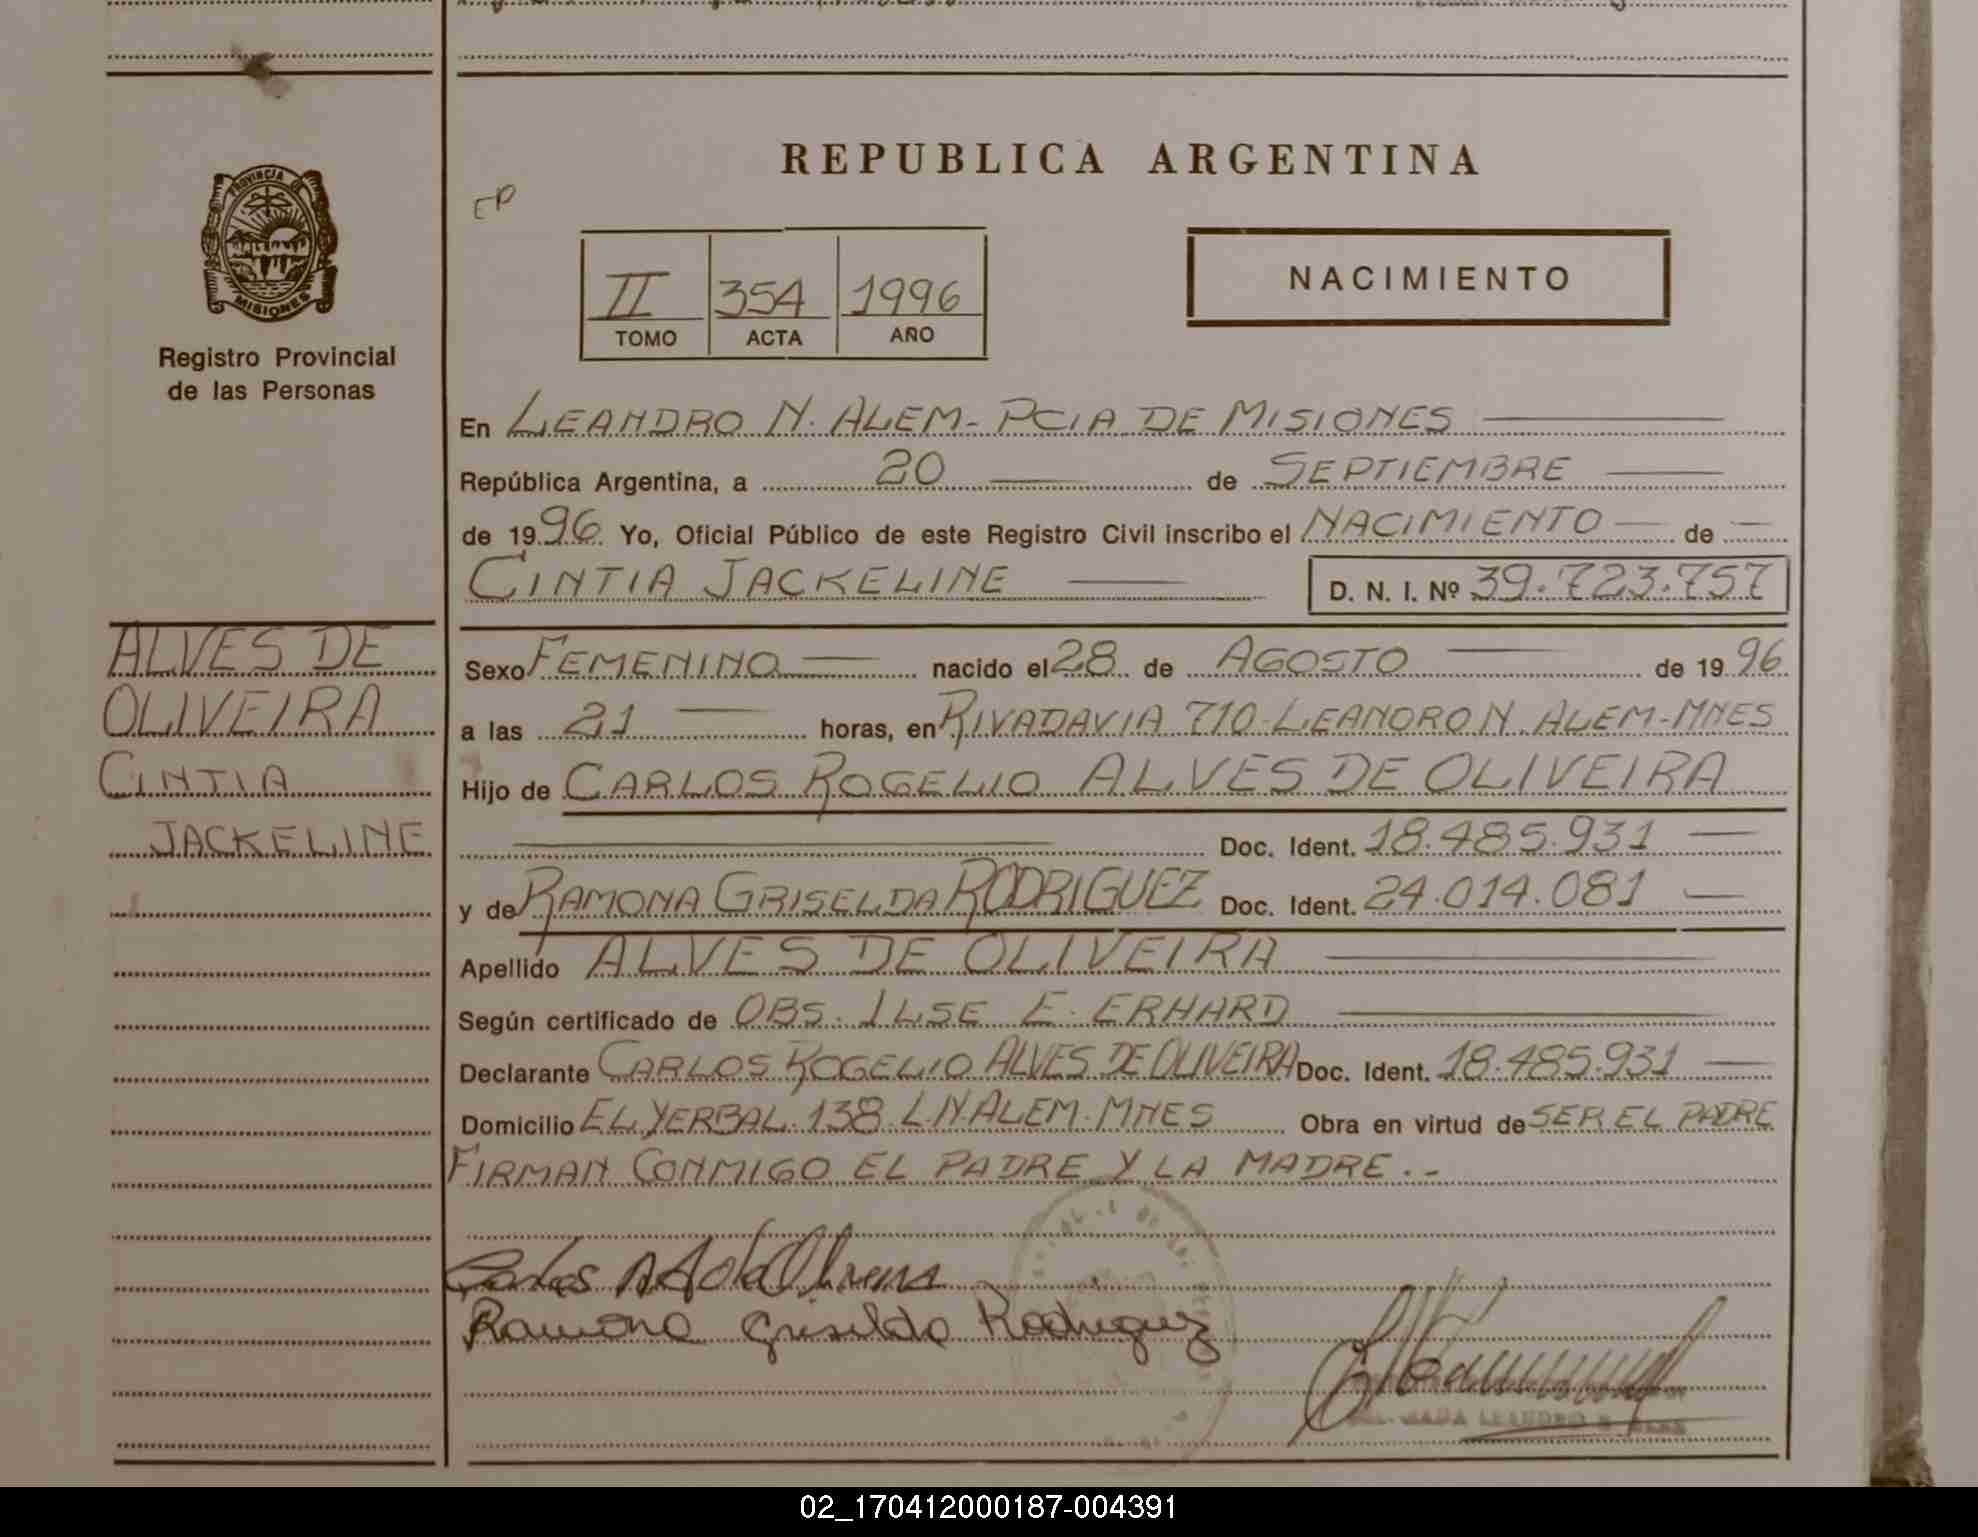 REPUBLICA ARGENTINA
EP
PROVINCIA DE
MISIONES
Registro Provincial
de las Personas
II 354 1996
TOMO ACTA AÑO
NACIMIENTO
En LEANDRO N. ALEM - PCIA DE MISIONES
República Argentina, a 20 de SEPTIEMBRE
de 1996 Yo, Oficial Público de este Registro Civil inscribo el NACIMIENTO de
CINTIA JACKELINE D. N. I. Nº 39.723.757
ALVES DE
OLIVEIRA
CINTIA
JACKELINE
Sexo FEMENINO nacido el 28 de AGOSTO de 1996
a las 21 horas, en RIVADAVIA 710 - LEANDRO N. ALEM - MNES
Hijo de CARLOS ROGELIO ALVES DE OLIVEIRA
Doc. Ident. 18.485.931
y de RAMONA GRISELDA RODRIGUEZ Doc. Ident. 24.014.081
Apellido ALVES DE OLIVEIRA
Según certificado de OBS. ILSE E. ERHARD
Declarante CARLOS ROGELIO ALVES DE OLIVEIRA Doc. Ident. 18.485.931
Domicilio EL YERBAL 138 L.N.ALEM. MNES Obra en virtud de SER EL PADRE
FIRMAN CONMIGO EL PADRE Y LA MADRE.-
Carlos
Ramona Griselda Rodriguez
LEANDRO N ALEM
02_170412000187-004391